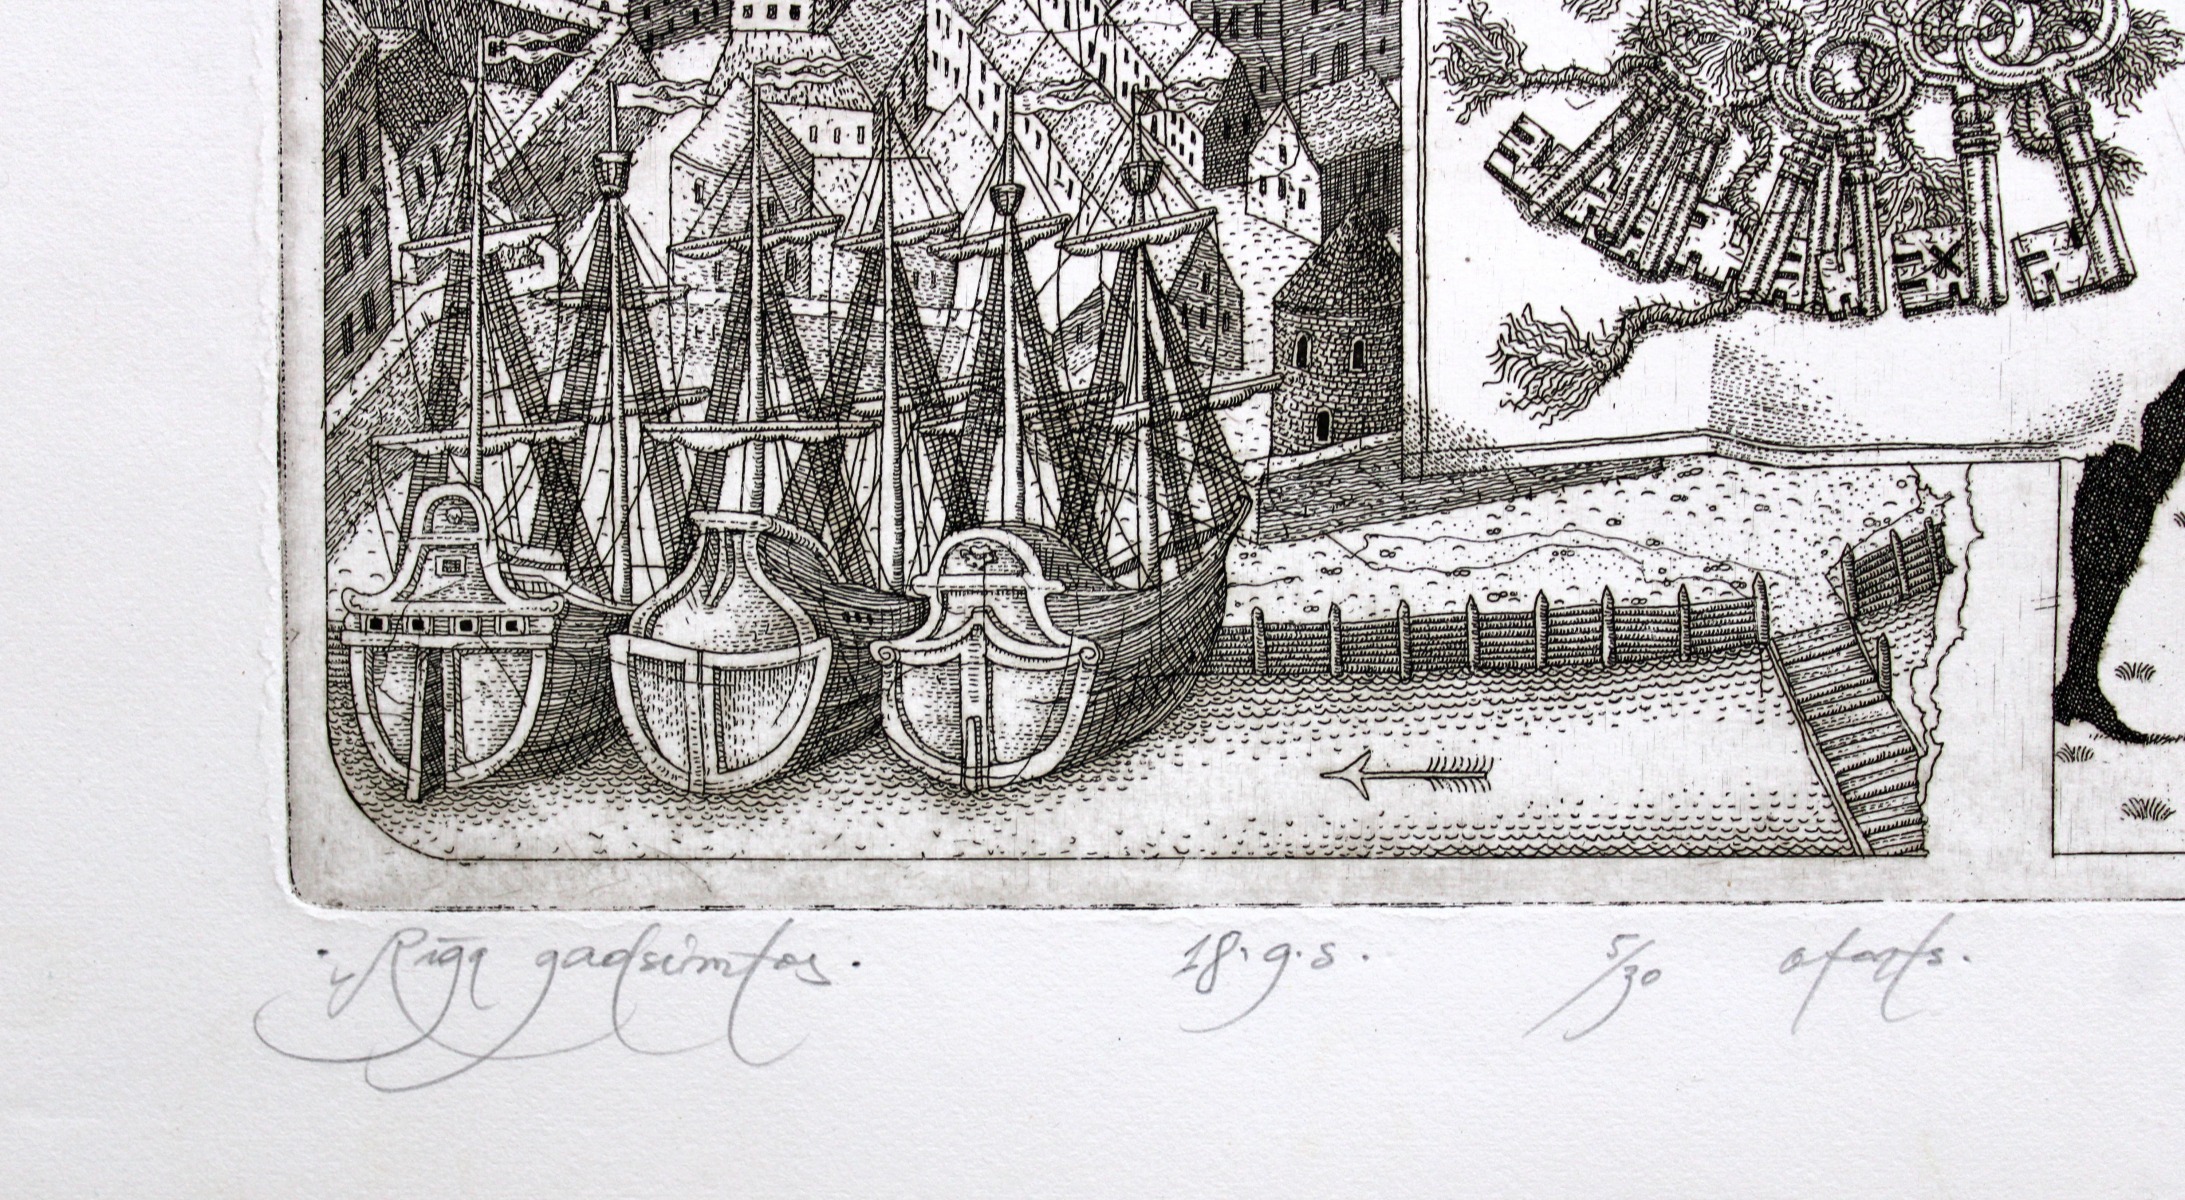 Rīga gadsimtos. 18.g.s. 5/30 oforts.